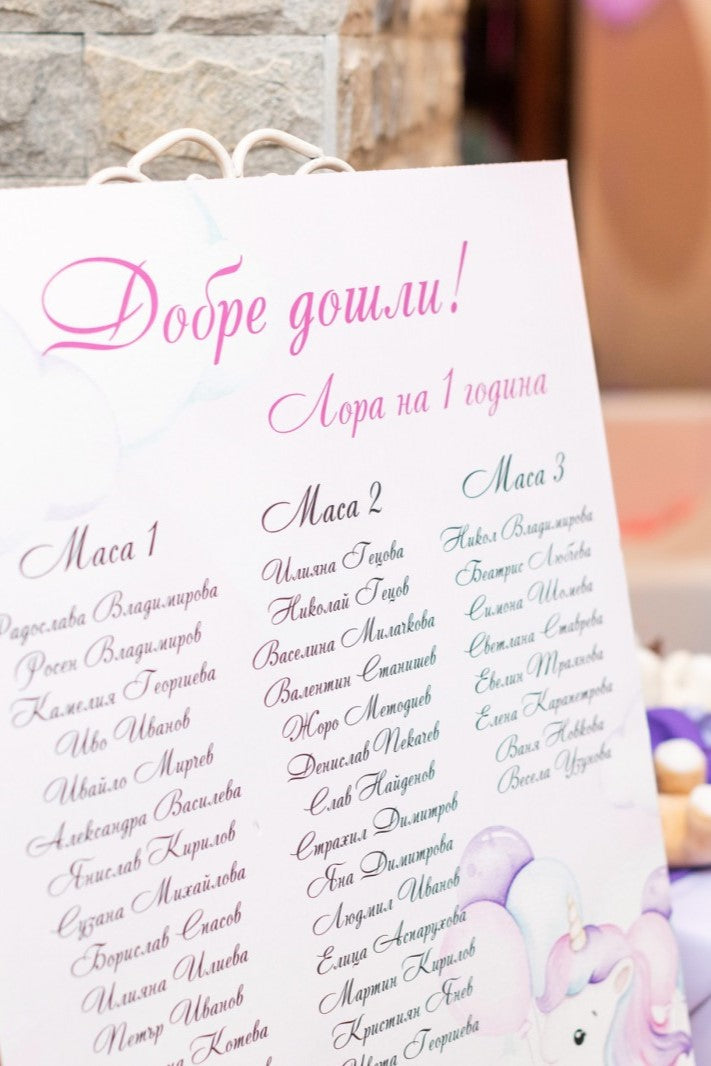 Добре дошли!
Лора на 1 година
Маса 1
Радослава Владимирова
Росен Владимиров
Камелия Георгиева
Иво Иванов
Ивайло Мирчев
Александра Василева
Янислав Кирилов
Сузана Михайлова
Борислав Спасов
Илияна Илиева
Петър Иванов
Котева
Маса 2
Илияна Гецова
Николай Гецов
Васелина Милачкова
Валентин Станишев
Жоро Методиев
Денислав Пекачев
Слав Найденов
Страхил Димитров
Яна Димитрова
Людмил Иванов
Елица Аспарухова
Мартин Кирилов
Кристиян Янев
Георгиева
Маса 3
Никол Владимирова
Беатрис Любчева
Симона Шомева
Светлана Ставрева
Евелин Траянова
Елена Карапетрова
Ваня Новкова
Весела Узунова